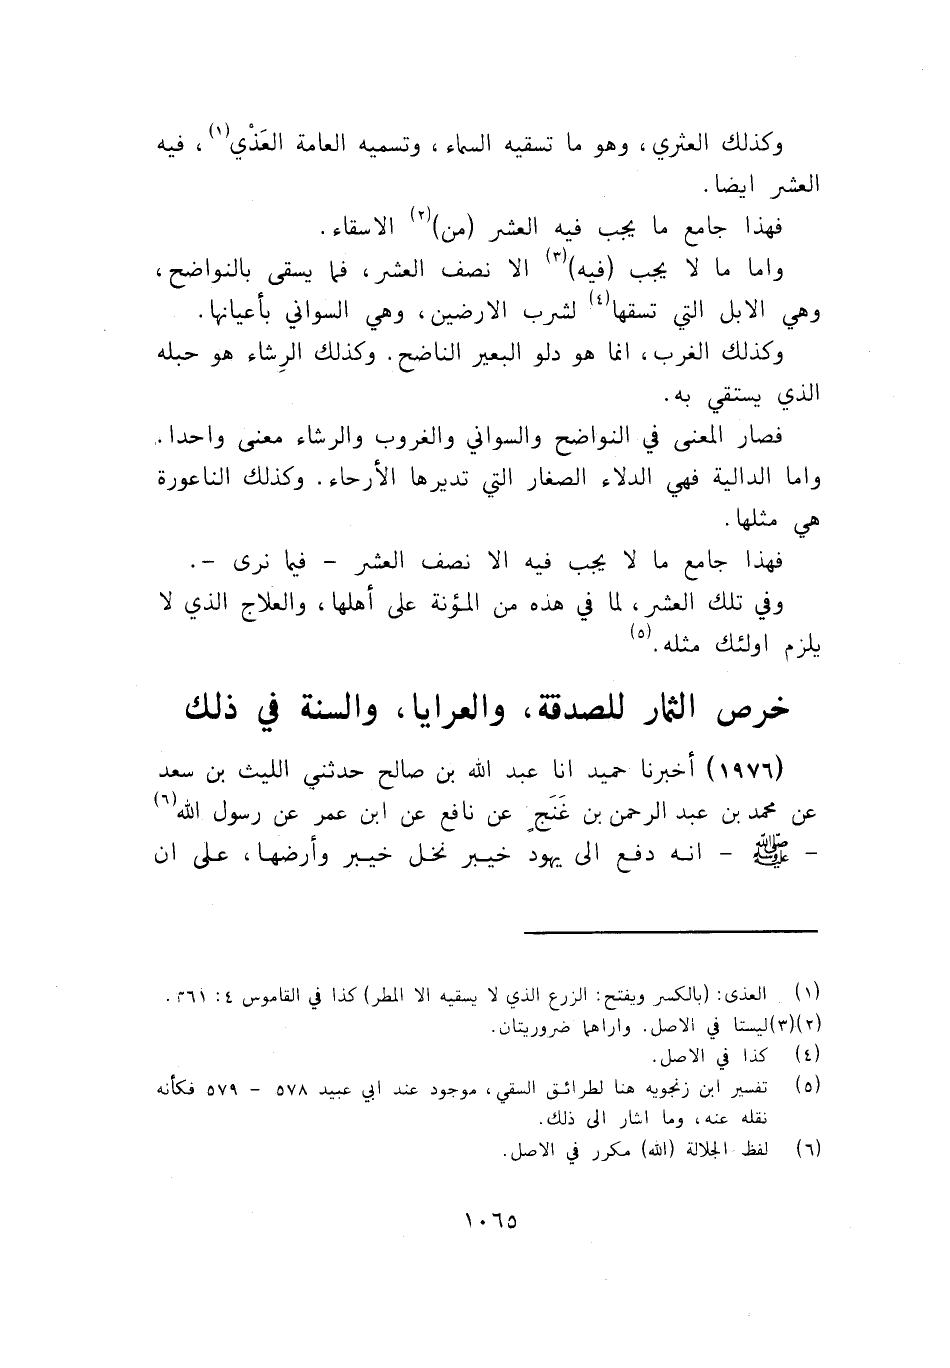 وكذلك العثري، وهو ما تسقيه السماء، وتسميه العامة العَذْي(١)، فيه
العشر ايضا.
فهذا جامع ما يجب فيه العشر (من)(٢) الاسقاء.
واما ما لا يجب (فيه)(٣) الا نصف العشر، فما يسقى بالنواضح،
وهي الابل التي تسقها(٤) لشرب الارضين، وهي السواني بأعيانها.
وكذلك الغرب، انما هو دلو البعير الناضح. وكذلك الرِشاء هو حبله
الذي يستقي به.
فصار المعنى في النواضح والسواني والغروب والرشاء معنى واحدا.
واما الدالية فهي الدلاء الصغار التي تديرها الأرحاء. وكذلك الناعورة
هي مثلها.
فهذا جامع ما لا يجب فيه الا نصف العشر - فيما نرى -.
وفي تلك العشر، لما في هذه من المؤنة على أهلها، والعلاج الذي لا
يلزم اولئك مثله.(٥)
خرص الثمار للصدقة، والعرايا، والسنة في ذلك
(١٩٧٦) أخبرنا حميد انا عبد الله بن صالح حدثني الليث بن سعد
عن محمد بن عبد الرحمن بن غَنَجٍ عن نافع عن ابن عمر عن رسول الله(٦)
- ﷺ - انه دفع الى يهود خيبر نخل خيبر وأرضها، على ان
(١) العذى: (بالكسر ويفتح: الزرع الذي لا يسقيه الا المطر) كذا في القاموس ٤: ٣٦١.
(٢)(٣) ليستا في الاصل. واراهما ضروريتان.
(٤) كذا في الاصل.
(٥) تفسير ابن زنجويه هنا لطرائق السقي، موجود عند ابي عبيد ٥٧٨ - ٥٧٩ فكأنه
نقله عنه، وما اشار الى ذلك.
(٦) لفظ الجلالة (الله) مكرر في الاصل.
١٠٦٥